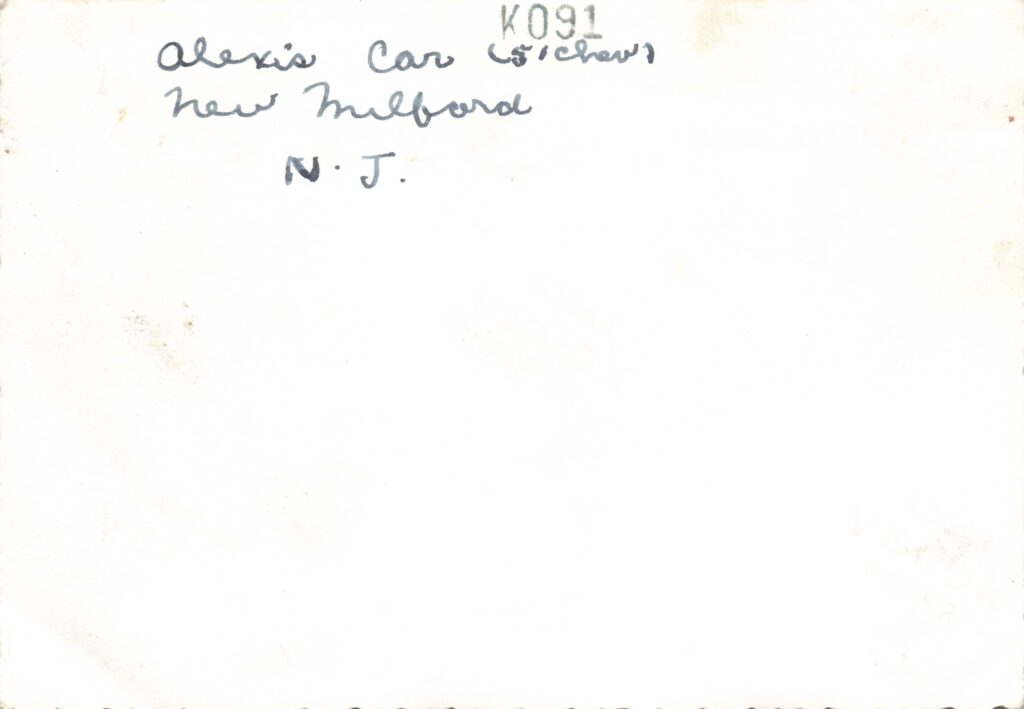 K091
Alexis Car (51 Chev)
New Milford
N. J.